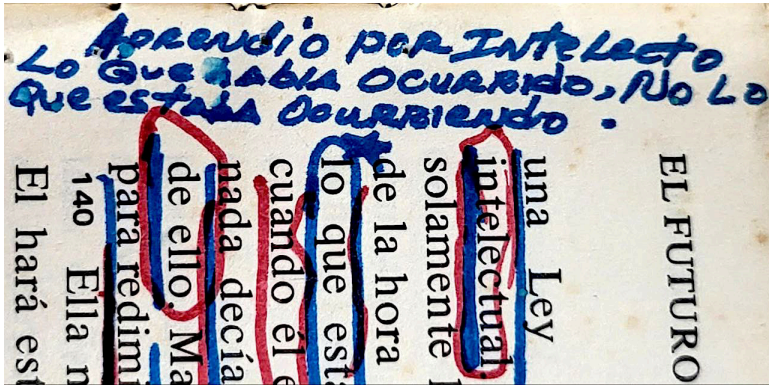 Aprendio por Intelecto
Lo Que habia ocurrido, No Lo
Que estaba Ocurriendo.
EL FUTURO
una Ley
intelectual.
solamente l
de la hora
lo que está
cuando él e
nada decía
de ello. Ma
para redimi
140 Ella n
El hará est